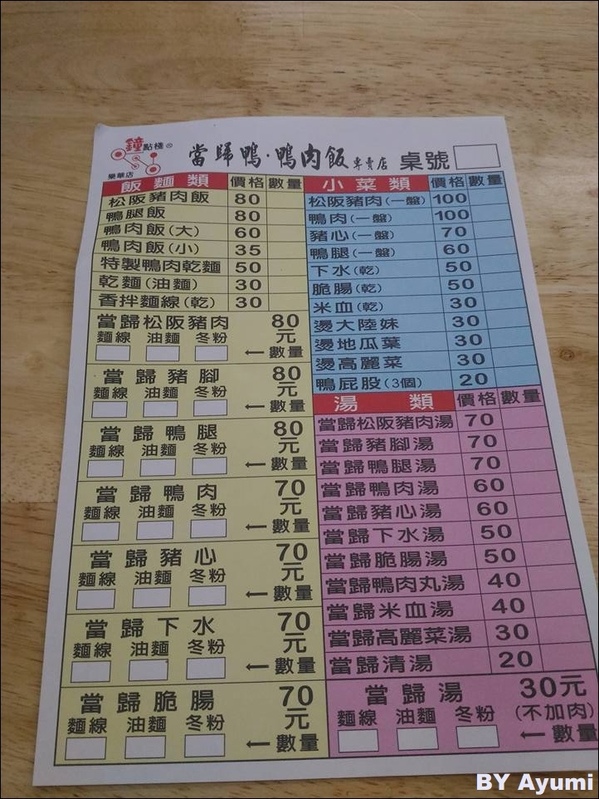 鐘點棧の
樂華店
當歸鴨·鴨肉飯專賣店 桌號
飯麵類 價格 數量
松阪豬肉飯 80
鴨腿飯 80
鴨肉飯(大) 60
鴨肉飯(小) 35
特製鴨肉乾麵 50
乾麵(油麵) 30
香拌麵線(乾) 30
當歸松阪豬肉 80元
麵線 油麵 冬粉 ←數量
當歸豬腳 80元
麵線 油麵 冬粉 ←數量
當歸鴨腿 80元
麵線 油麵 冬粉 ←數量
當歸鴨肉 70元
麵線 油麵 冬粉 ←數量
當歸豬心 70元
麵線 油麵 冬粉 ←數量
當歸下水 70元
麵線 油麵 冬粉 ←數量
當歸脆腸 70元
麵線 油麵 冬粉 ←數量
小菜類 價格 數量
松阪豬肉(一盤) 100
鴨肉(一盤) 100
豬心(一盤) 70
鴨腿(一盤) 60
下水(乾) 50
脆腸(乾) 50
米血(乾) 30
燙大陸妹 30
燙地瓜葉 30
燙高麗菜 30
鴨屁股(3個) 20
湯類 價格 數量
當歸松阪豬肉湯 70
當歸豬腳湯 70
當歸鴨腿湯 70
當歸鴨肉湯 60
當歸豬心湯 60
當歸下水湯 50
當歸脆腸湯 50
當歸鴨肉丸湯 40
當歸米血湯 40
當歸高麗菜湯 30
當歸清湯 20
當歸湯 30元
(不加肉)
麵線 油麵 冬粉 ←數量
BY Ayumi